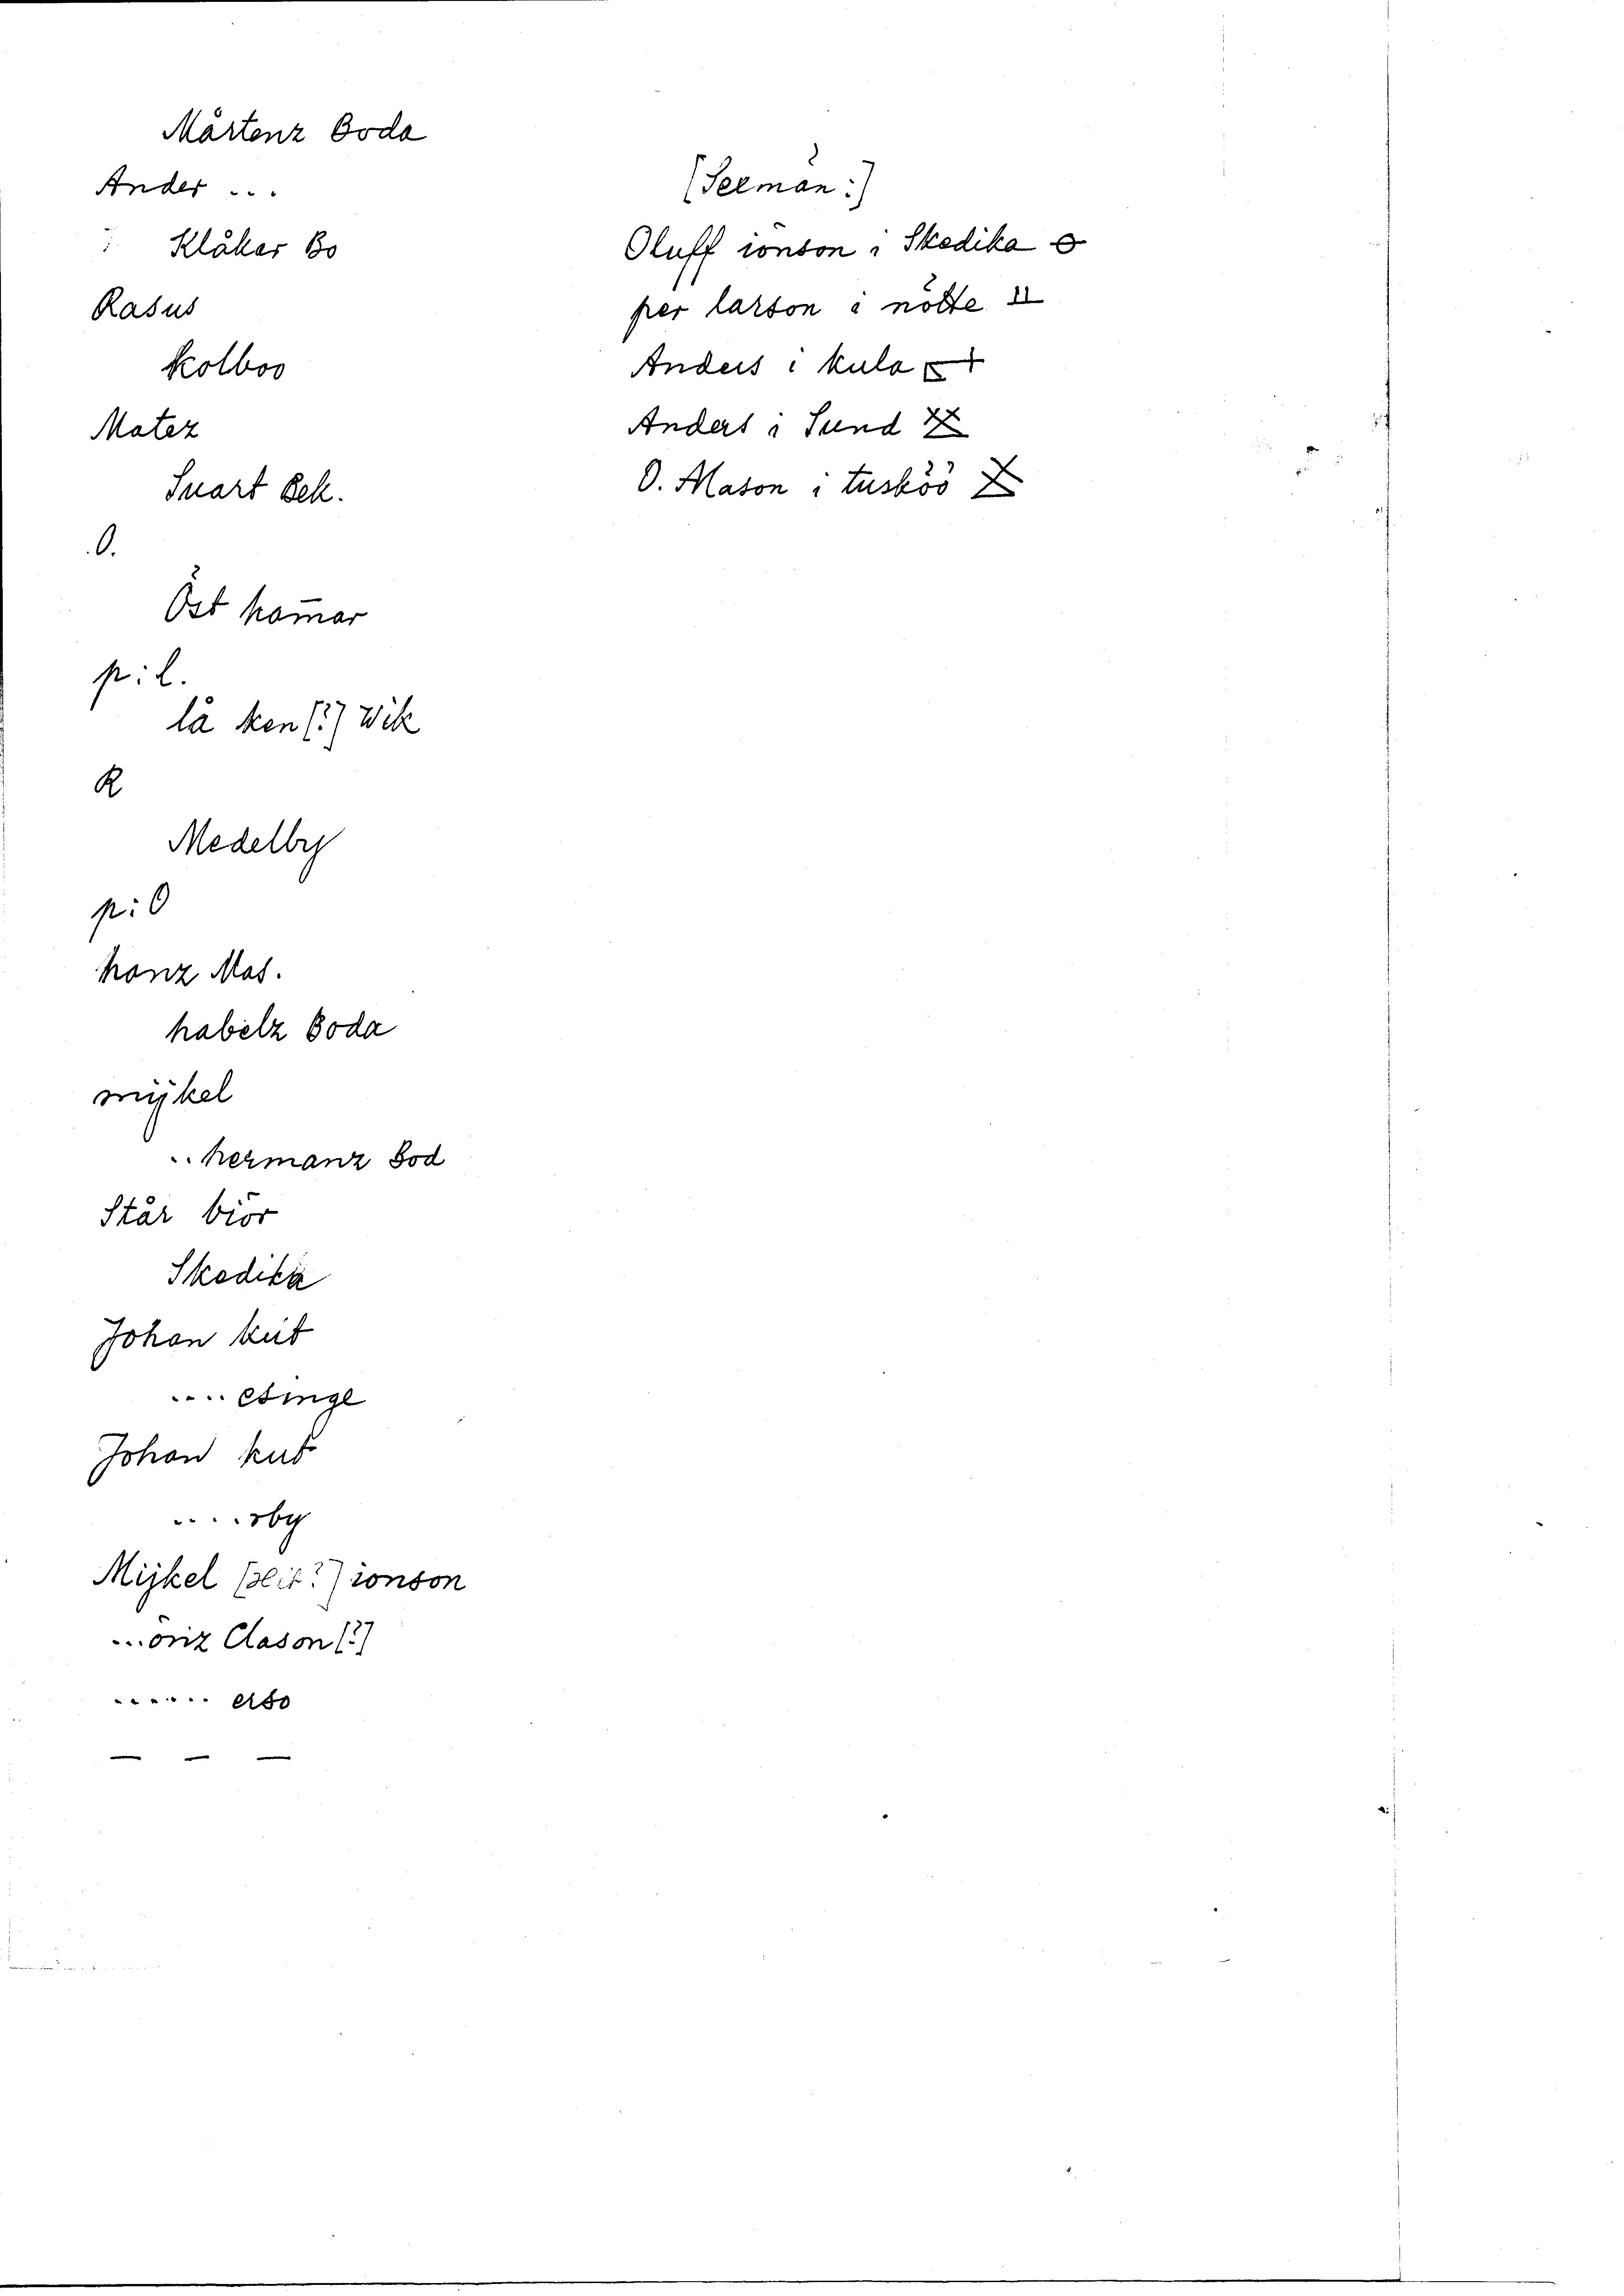 Mårtenz Boda
Ander ...
Klåkar Bo
Rasus
Kolboo
Matez
Suart Bek.
O.
Öst hom̄ar
p: l.
lå ken (?) Wik
R
Medelby
p: O
hanz Mas.
habelz Boda
mÿkel
.. hermanz Bod
Står biör
Skedika
Johan kut
.... esinge
Johan kut
.... rby
Mijkel (?) ionson
... öriz Clason (?)
...... erbo
— — —
(Seeman:)
Oluff ionson i Skedika
per larson i nötte
Anders i kula
Anders i Sund
O. Mason i tusköö